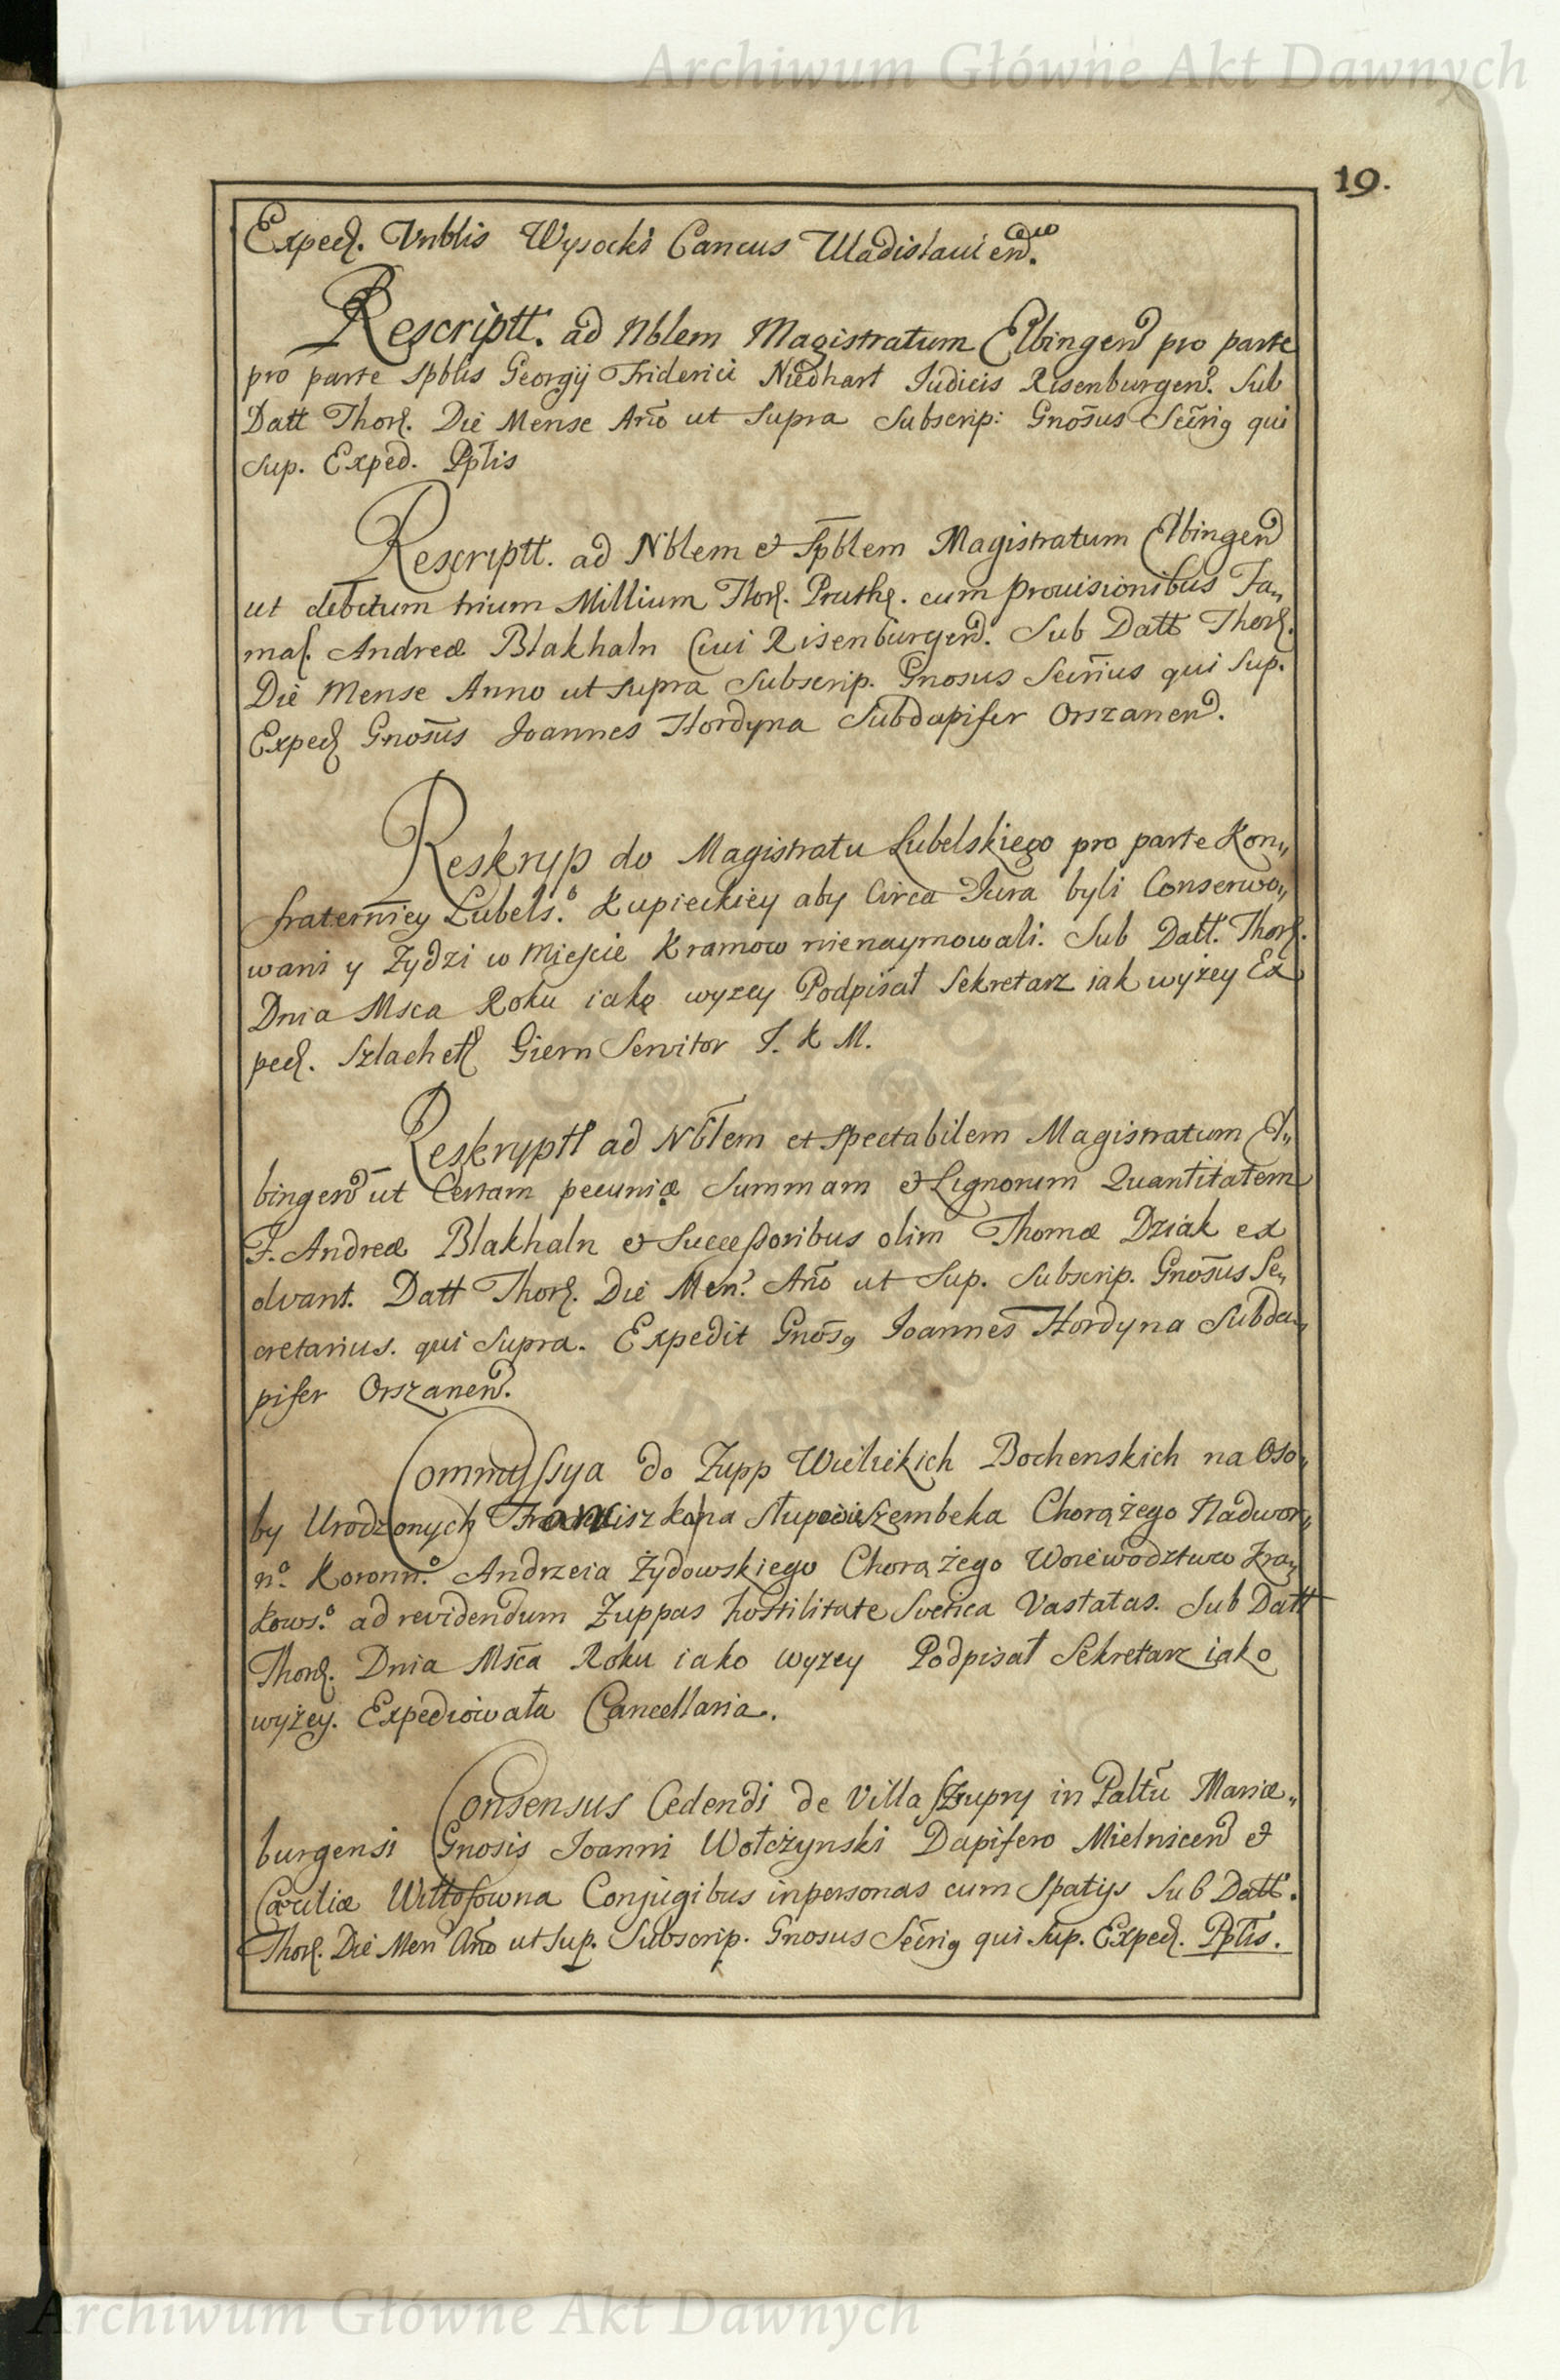 Archiwum Główne Akt Dawnych
19.
Exped. Vnblis Wysocki Cancus Uladislauien.
Rescriptt. ad Nblem Magistratum Elbingen pro parte
pro parte Spblis Georgij Friderici Niedhart Iudicis Risenburgen. Sub
Datt Thor. Die Mense Año ut Supra Subscrip: Gnosus Secrig qui
Sup. Exped. Pptis
Rescriptt. ad Nblem et Spblem Magistratum Elbingen
ut debitum trium Millium Flor. Pruth. cum provisionibus Fa„
mas. Andreæ Blakhaln Ciui Risenburgen. Sub Datt Thor.
Die Mense Anno ut supra Subscrip. Gnosus Secrius qui Sup.
Exped Gnosus Joannes Hordyna Subdapifer Orszanen.
Reskryp do Magistratu Lubelskiego pro parte Kon„
fraterniey Lubels.º Kupieckiey aby Circa Iura byli Conserwo„
wani y Zydzi w Mieście Kramow nienaymowali. Sub Datt. Thor.
Dnia Msca Roku iako wyzey Podpisał Sekretarz iak wyżey Ex
ped. Szlachet Giern Servitor J. K M.
Reskryptt ad Nblem et spectabilem Magistratum El„
bingen ut Certam pecuniæ Summam et Lignorum Quantitatem
F. Andreæ Blakhaln et Successoribus olim Thomæ Dziak ex
olvant. Datt Thor. Die Men. Año ut Sup. Subscrip. Gnosus Se„
cretarius. qui Supra. Expedit Gnosg Joannes Hordyna Subda„
pifer Orszanen.
Commissya do Zupp Wielickich Bochenskich na Oso„
by Urodzonych Franciszka na Słupowie Szembeka Chorążego Nadwor„
nº Koronn.º Andrzeia Żydowskiego Chorążego Woiewodztwa Kra„
kows.º ad revidendum Zuppas hostilitate Svetica Vastatas. Sub Datt
Thor. Dnia Msca Roku iako wyzey Podpisał Sekretarz iako
wyżey. Expediowała Cancellaria.
Consensus Cedendi de Villa Szupry in Paltu Mariæ„
burgensi Gnosis Joanni Wołczynski Dapifero Mielnicen et
Cæciliæ Wittosowna Conjugibus inpersonas cum Spatijs Sub Datt.
Thor. Die Men Año ut Sup. Subscrip. Gnosus Secrig qui Sup. Exped. Pptis.
Archiwum Główne Akt Dawnych